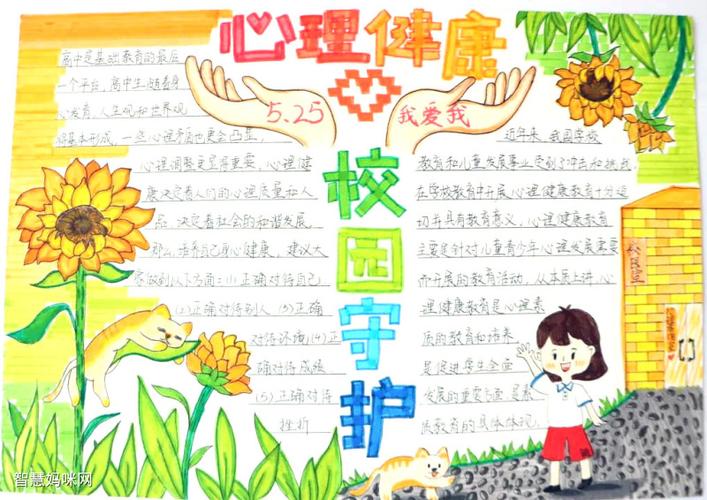 心理健康
5.25
我爱我
校园守护
高中是基础教育的最后
一个平台,高中生随着身
心发育,人生观和世界观
将基本形成,一些心理矛盾也更会凸显,
心理调整更显得重要,心理健
康决定着人们的心理质量和人
品,决定着社会的和谐发展.
那么,培养自己身心健康,建议大
家做到以下方面:(1)正确对待自己
(2)正确对待别人 (3)正确
对待环境(4)正
确对待成绩
(5)正确对待
挫折
近年来,我国学校
教育和儿童发展事业受到了冲击和挑战,
在学校教育中开展心理健康教育十分迫
切并具有教育意义,心理健康教育
主要是针对儿童青少年心理发展需要
而开展的教育活动,从本质上讲心
理健康教育是心理素
质的教育和培养
是促进学生全面
发展的重要方面,是素
质教育的具体体现.
智慧妈咪网